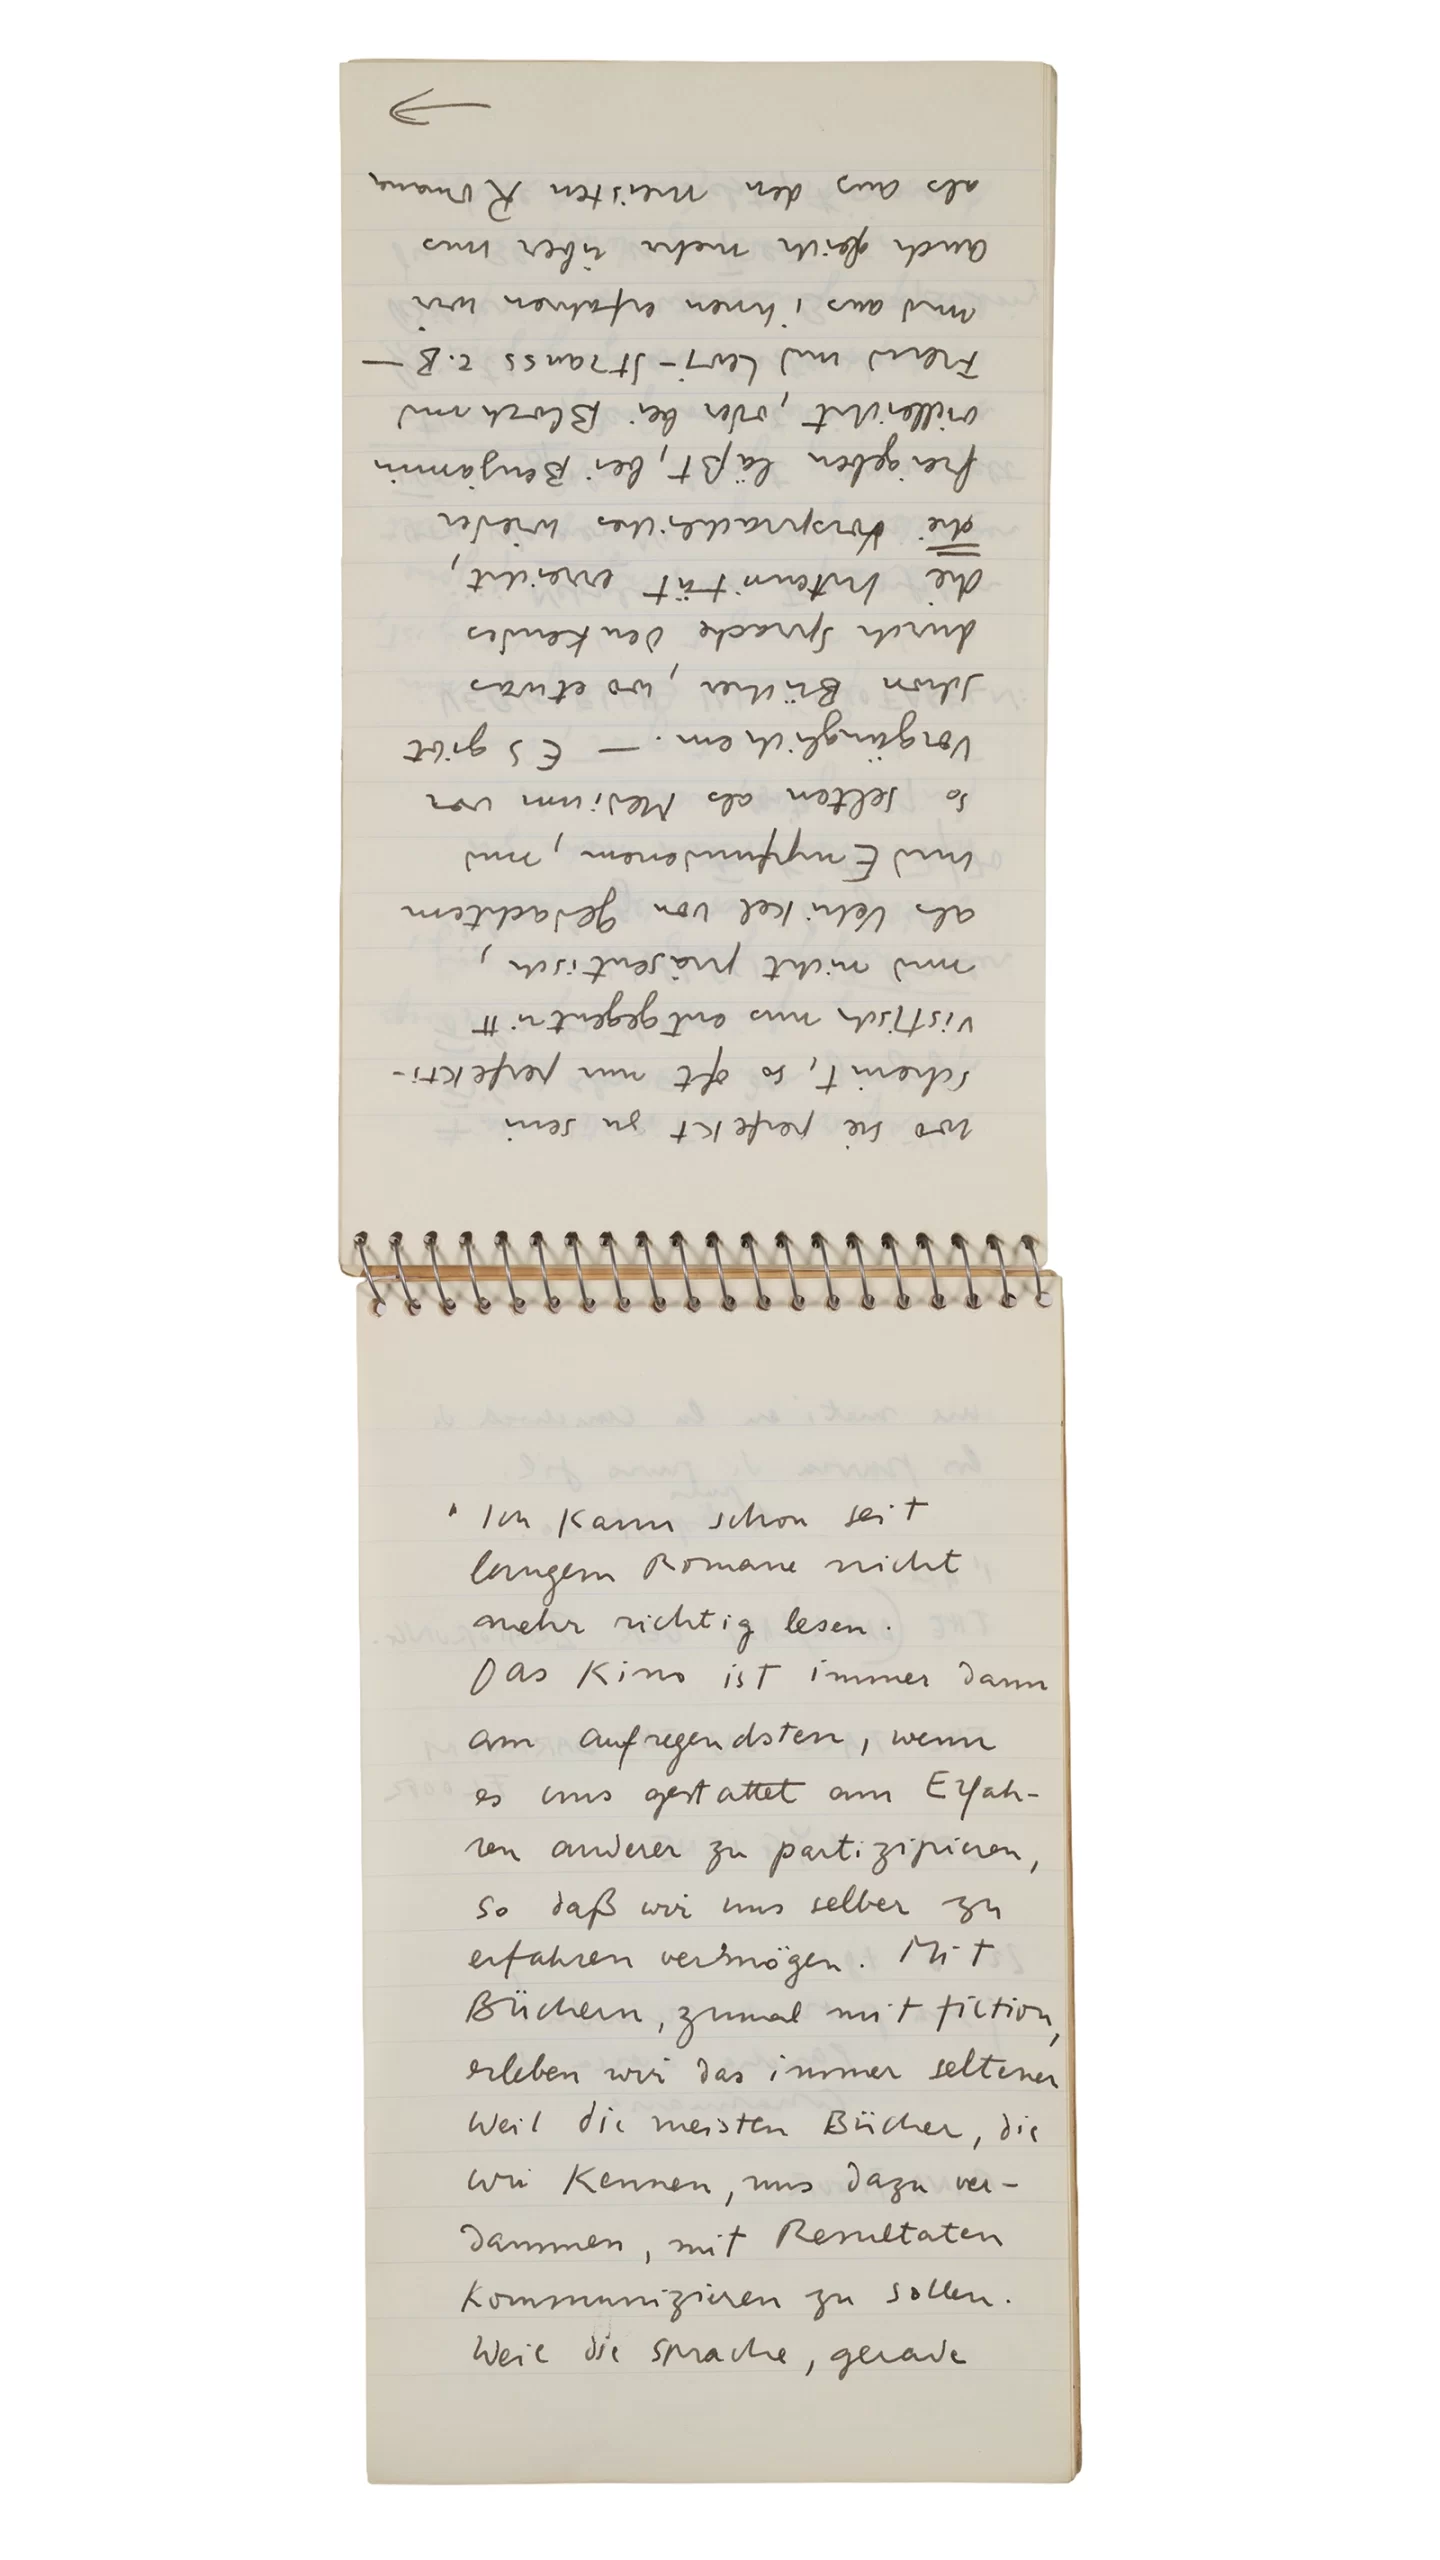 " Ich kann schon seit
langem Romane nicht
mehr richtig lesen.
Das Kino ist immer dann
am aufregendsten, wenn
es uns gestattet am Erfah-
ren anderer zu partizipieren,
so daß wir uns selber zu
erfahren vermögen. Mit
Büchern, zumal mit fiction,
erleben wir das immer seltener
Weil die meisten Bücher, die
wir kennen, uns dazu ver-
dammen, mit Resultaten
kommunizieren zu sollen.
Weil die Sprache, gerade
wo sie perfekt zu sein
scheint, so oft nur perfekti-
vistisch uns entgegentritt
und nicht präsentisch,
als Vehikel von gedachtem
und Empfundenem, und
so selten als Medium von
Vorgänglichem. — ES gibt
schon Bücher, wo etwas
durch Sprache Denkendes
die Intensität erreicht,
die Vorsprachliches wieder
freigeben läßt, bei Benjamin
vielleicht, oder bei Bloch und
Freud und Levi-Strauss z.B —
und aus ihnen erfahren wir
auch gleich mehr über uns
als aus den meisten Romanen